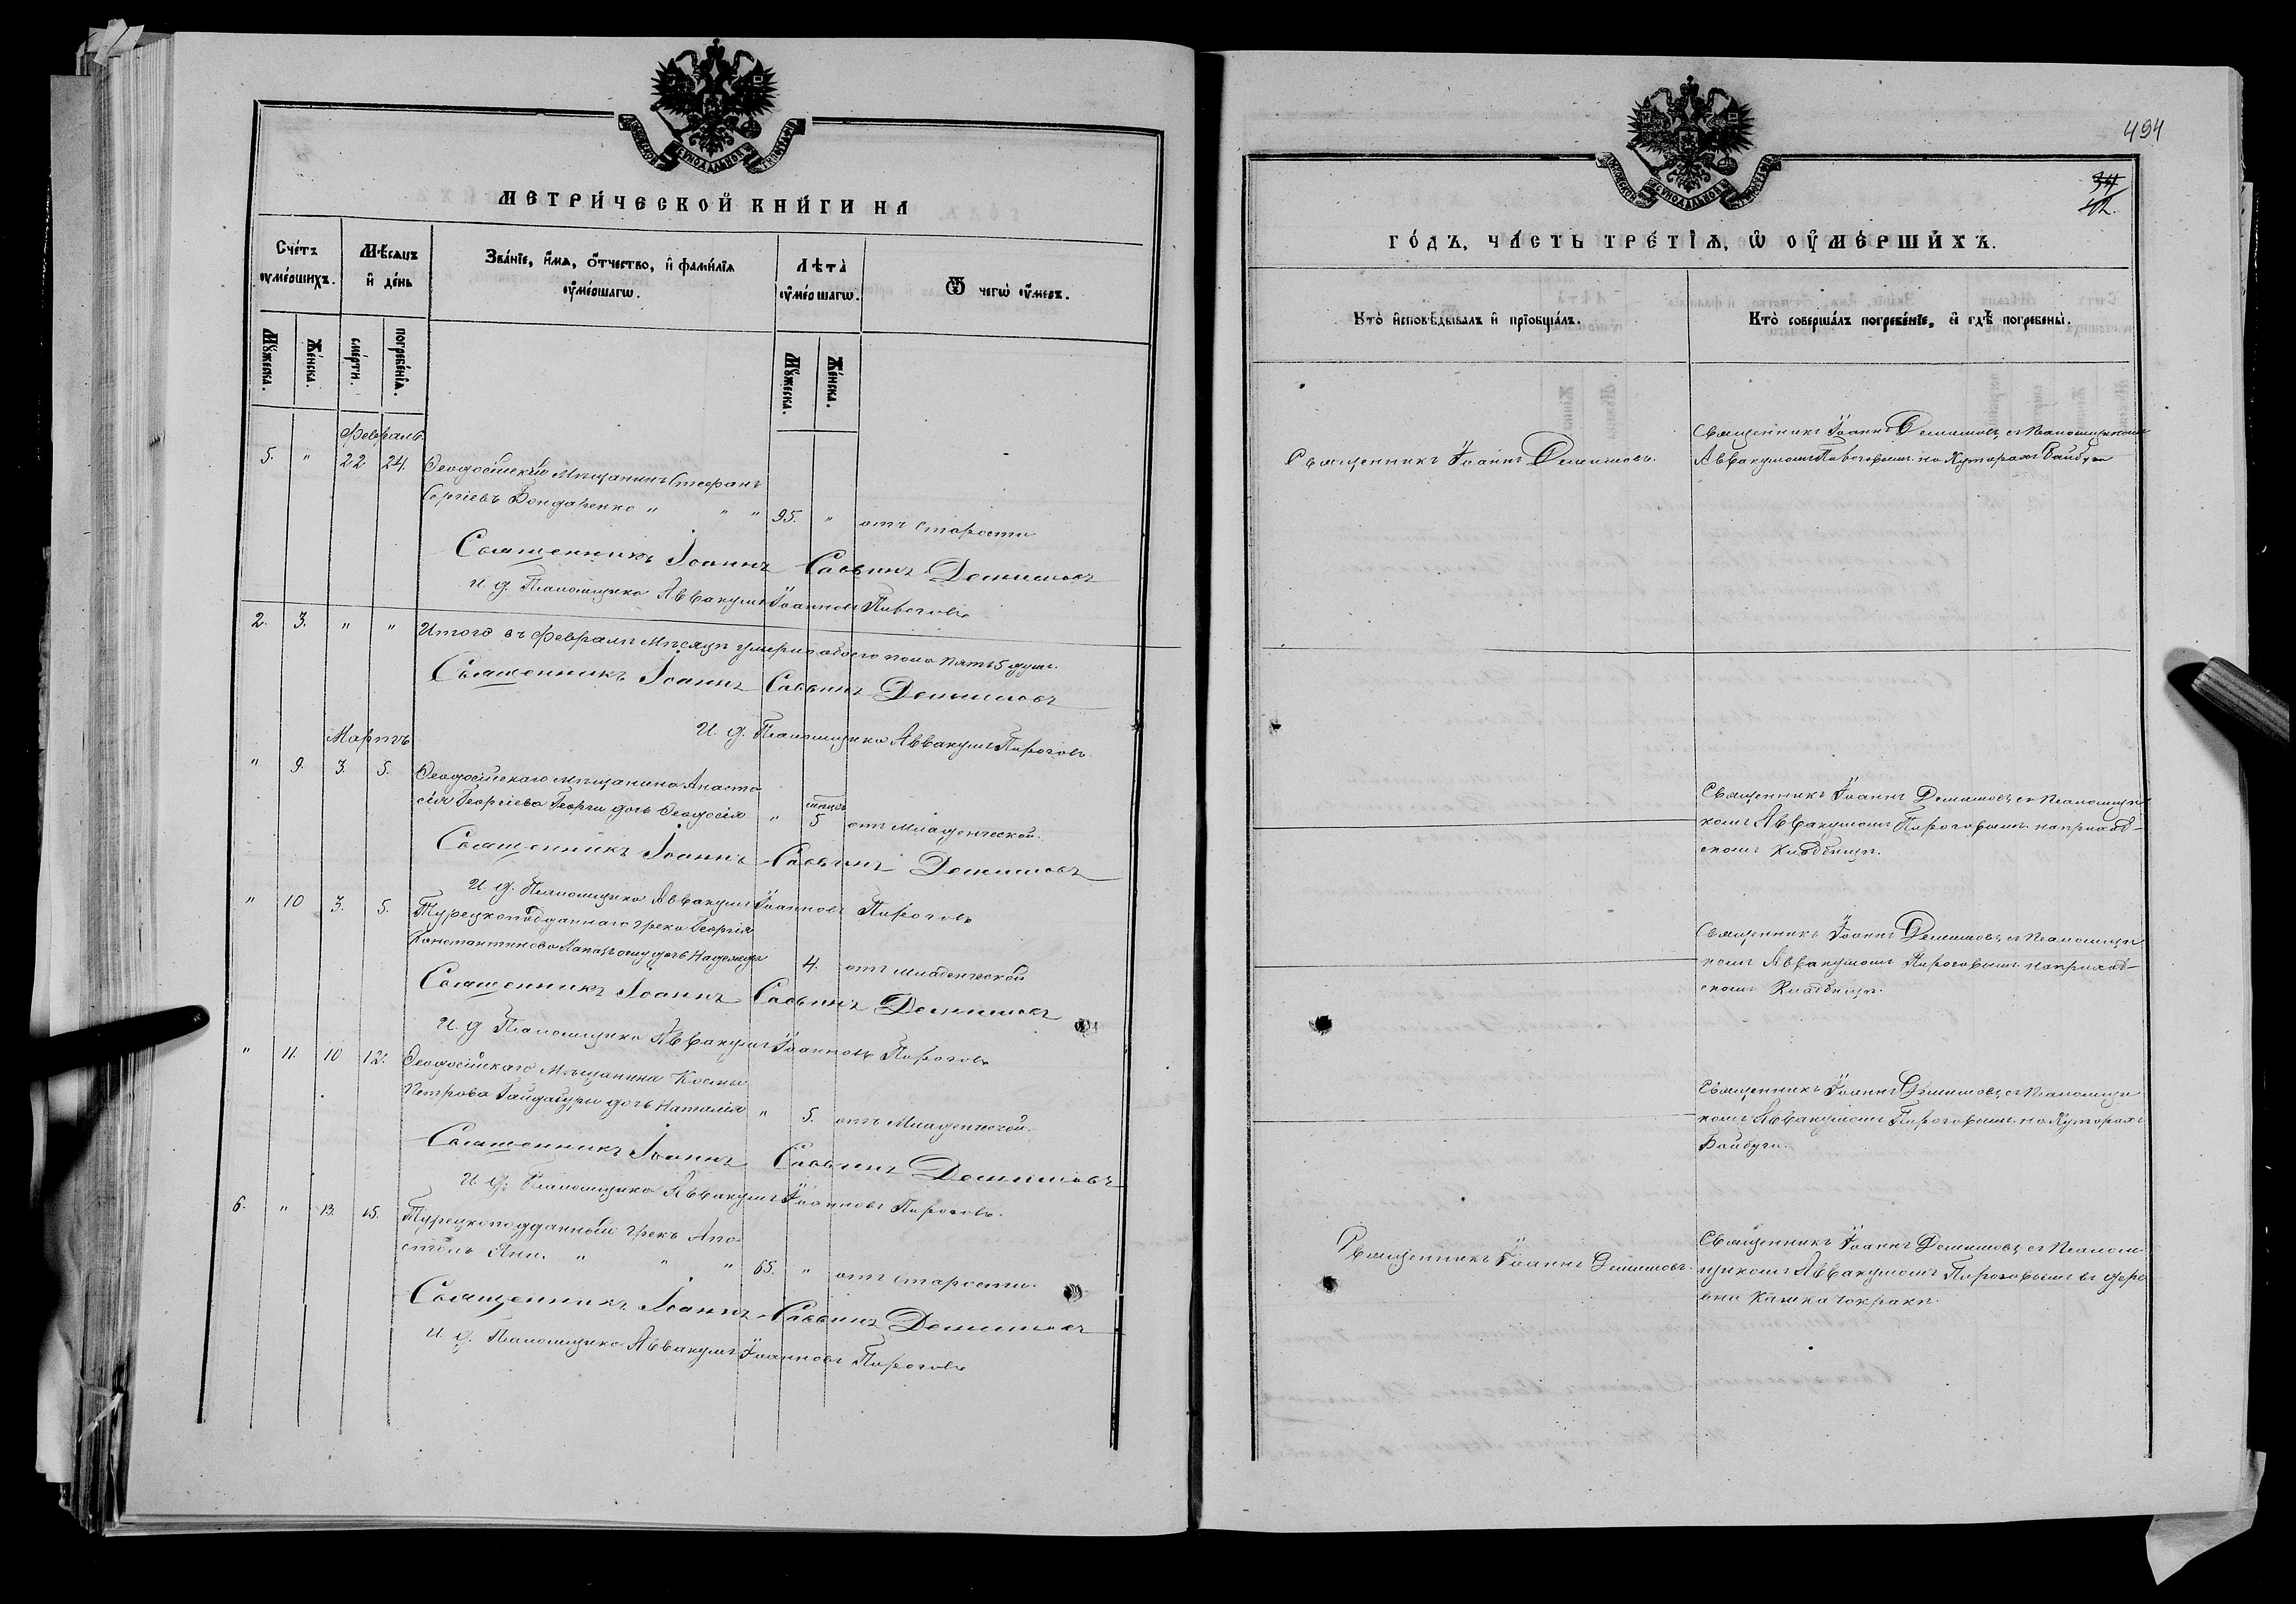 МЕТРИ́ЧЕСКОЙ КНИ́ГИ НА
Сче́тъ ᲂу҆ме́ршихъ.
Мѣ́сяцъ и҆ де́нь
Зва́нїе, и҆́мѧ, ѻ҆́тчество, и҆ фамѝлїѧ ᲂу҆ме́ршагѡ.
Лѣ́та ᲂу҆ме́ршагѡ.
Ѿ чегѡ̀ ᲂу҆́меръ.
Мꙋ́жеска.
Же́нска.
сме́рти.
погребе́нїѧ.
Мꙋ́жеска.
Же́нска.
Февраль.
5. " 22 24. Ѳеодосійскій Мѣщанинъ Стефанъ
Сергіевъ Бондаренко " " " 95. " отъ старости
Священникъ Іоаннъ Саввинъ Демишовъ
И. д. Псаломщика Аввакумъ Іоанновъ Пироговъ
2. 3. " " Итого въ Февралѣ мѣсяцѣ умерло обоего пола пять 5 душъ.
Священникъ Іоаннъ Саввинъ Демишовъ
И. д. Псаломщика Аввакумъ Пироговъ
Мартъ
" 9. 3. 5. Ѳеодосійскаго мѣщанина Анаста
сія Георгіева Георги дочь Ѳеодосія " 5 отъ младенческой.
Священникъ Іоаннъ Саввинъ Демишовъ
И. д. Псаломщика Аввакумъ Іоанновъ Пироговъ
" 10 3. 5. Турецкоподданнаго грека Георгія
Константинова дочь Надежда 4. отъ младенческой
Священникъ Іоаннъ Саввинъ Демишовъ
И. д. Псаломщика Аввакумъ Іоанновъ Пироговъ
" 11. 10 12. Ѳеодосійскаго Мѣщанина Космы
Петрова дочь Наталія " 5. отъ Младенческой.
Священникъ Іоаннъ Саввинъ Демишовъ
И. д. Псаломщика Аввакумъ Іоанновъ Пироговъ.
6. " 13. 15. Турецкоподданный грекъ Апо
столъ Яни. " " " 65. " отъ старости.
Священникъ Іоаннъ Саввинъ Демишовъ
И. д. Псаломщика Аввакумъ Іоанновъ Пироговъ
494
34
42.
ГО́ДЪ, ЧА́СТЬ ТРЕ́ТЇѦ, Ѡ҆ ОУ҆МЕ́РШИХЪ.
Кто̀ и҆сповѣ́дывалъ и҆ прїѡбща́лъ.
Кто̀ соверша́лъ погребе́нїе, и҆ гдѣ̀ погребены̀.
Священникъ Іоаннъ Демишовъ.
Священникъ Іоаннъ Демишовъ, съ Псаломщикомъ
Аввакумомъ Пироговымъ. на Хуторахъ Байбуги
Священникъ Іоаннъ Демишовъ, съ Псаломщи
комъ Аввакумомъ Пироговымъ на приход–
скомъ Кладбищѣ.
Священникъ Іоаннъ Демишовъ, съ Псаломщи
комъ Аввакумомъ Пироговымъ на приход–
скомъ Кладбищѣ.
Священникъ Іоаннъ Демишовъ, съ Псаломщи
комъ Аввакумомъ Пироговымъ. на Хуторахъ
Байбуги.
Священникъ Іоаннъ Демишовъ.
Священникъ Іоаннъ Демишовъ, съ Псалом
щикомъ Аввакумомъ Пироговымъ въ дере
вни Камка Чокракъ.